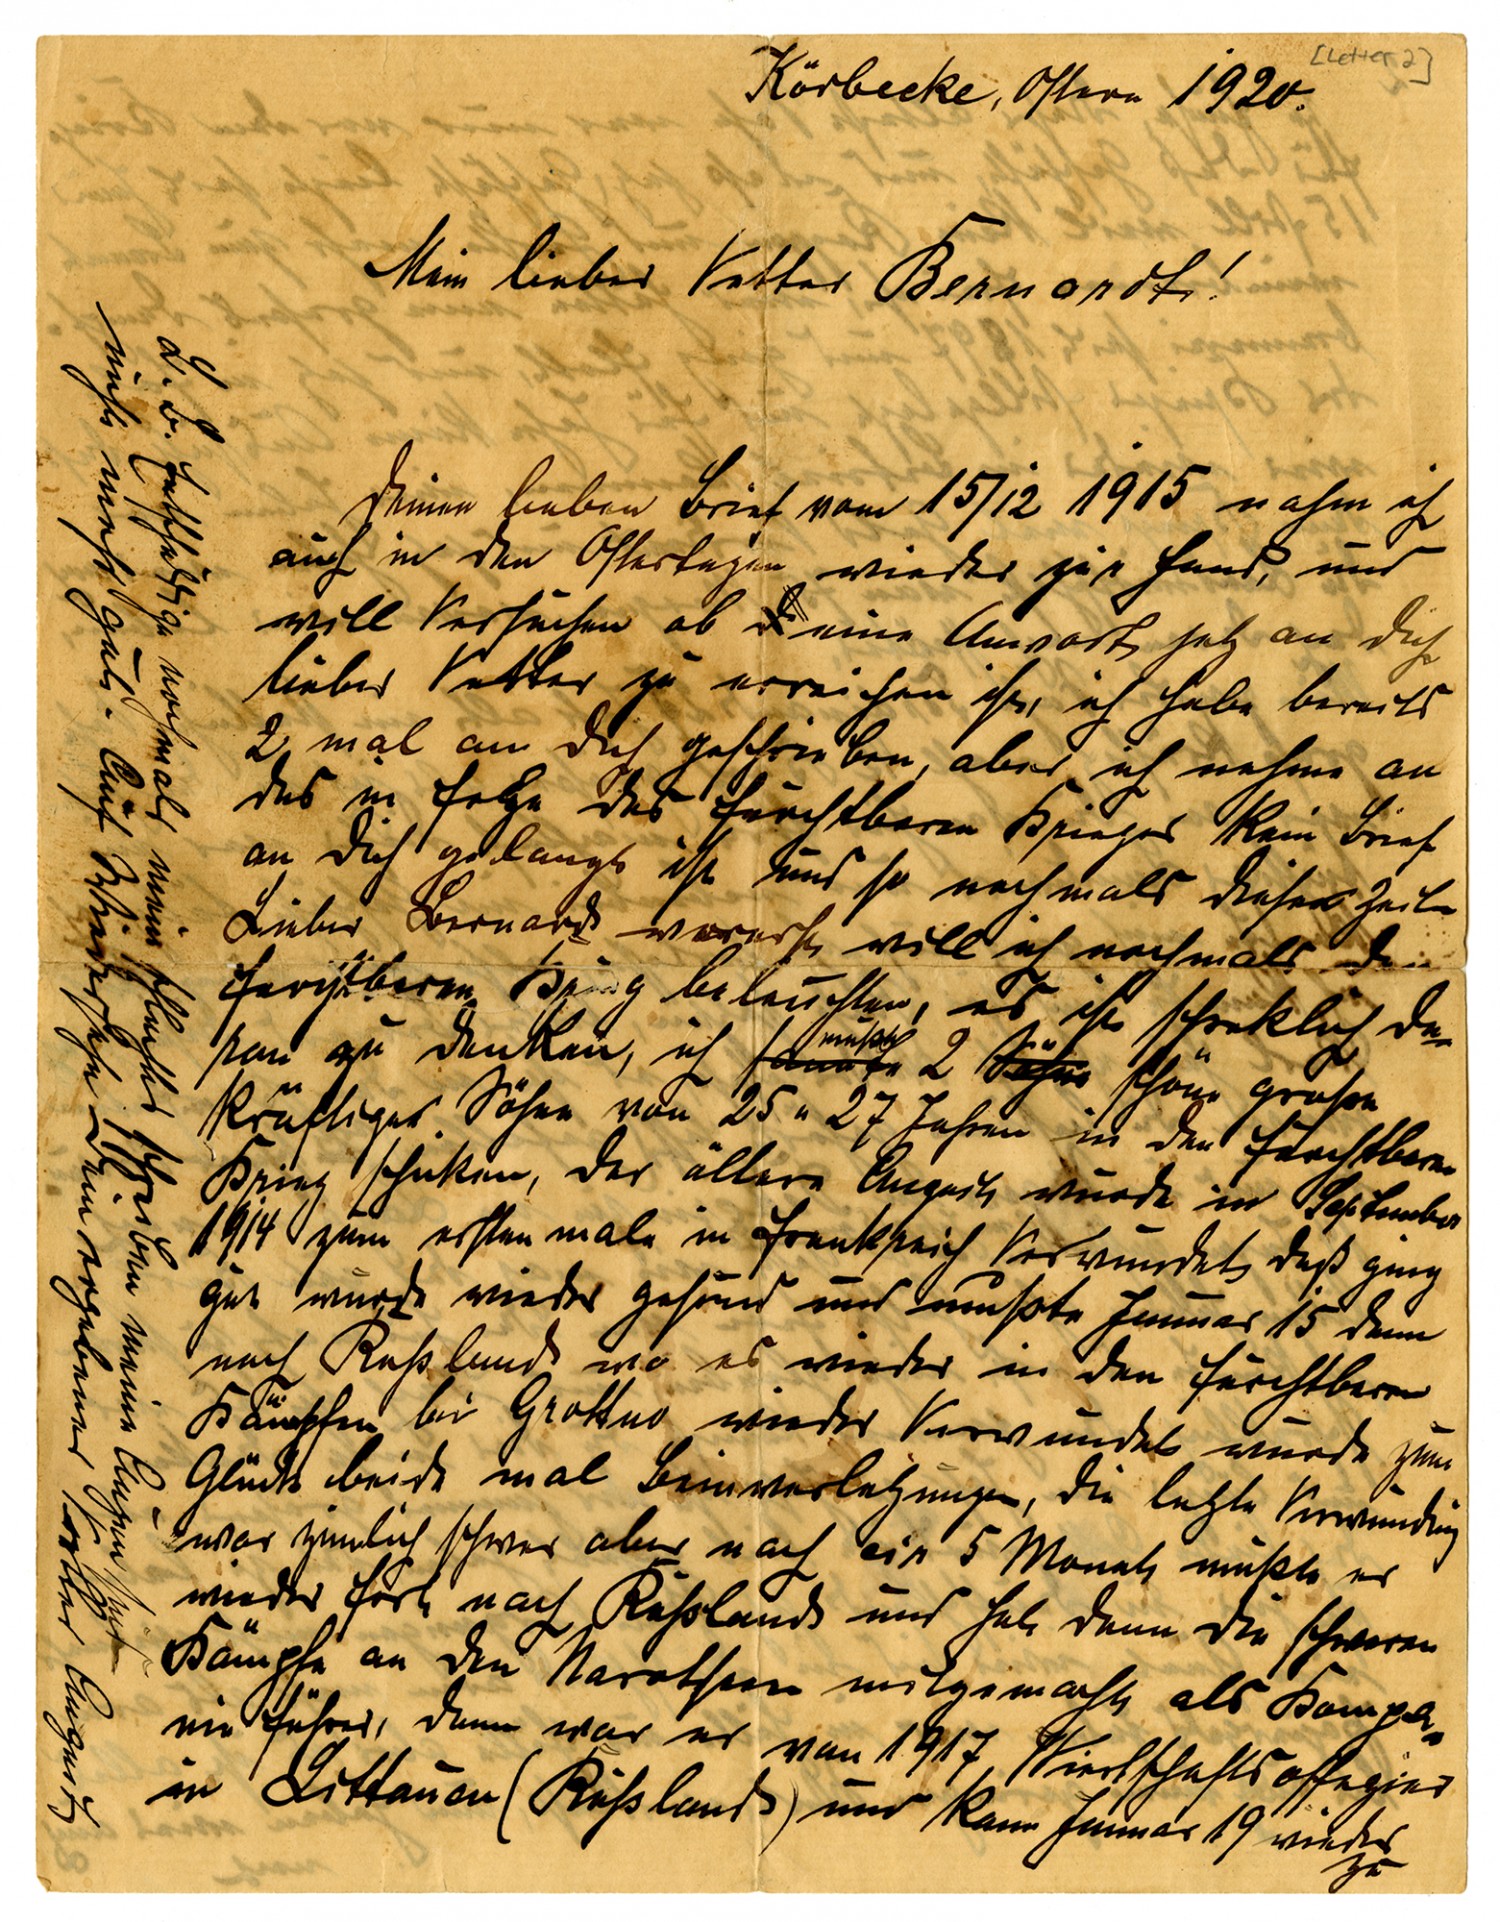 [Letter 2]
Körbecke, Ostern 1920.
Mein lieber Vetter Bernardt!
Deinen lieben Brief vom 15/12 1915 nahm ich
auch in den Ostertagen wieder zur Hand, und
will Versuchen ob eine Anwort jetz an Dich
lieber Vetter zu erreichen ist, ich habe bereits
2 mal an Dich geschrieben, aber ich nehme an
das in folge des furchtbaren Krieges kein Brief
an Dich gelangt ist und so nochmals diese Zeile
Lieber Bernardt vorerst will ich nochmals de
furchtbaren Krieg beleuchten, es ist schreklich da-
ran zu denken, ich mußte 2 schöne große
kräftiger Söhne von 25 u 27 Jahren in den furchtbaren
Krieg schicken, der ältere August wurde im September
1914 zum ersten male in Frankreich Verwundet, daß ging
gut wurde wieder gesund und mußte Januar 15 dann
nach Rußland wo es wieder in den furchtbaren
Kämpfen bei Grottno wieder Verwundet wurde zum
Glück beide mal Beinverletzungen, die letzte Verwundung
war zimlich schwer aber nach cir 5 Monat mußte er
wieder fort nach Rußland und hat dann die schweren
Kämpfe an den Narotseen mitgemacht als Kompa-
nie führer, dann war er von 1917 Wirtschaftsoffezier
in Littauen (Rußland) und kam Januar 19 wieder
zu
L. B. Entschuldige nochmals mein schlechtes schreiben meine Augen
nicht mehr gut. Auf Wiedersehen Dein ergebener Vetter August